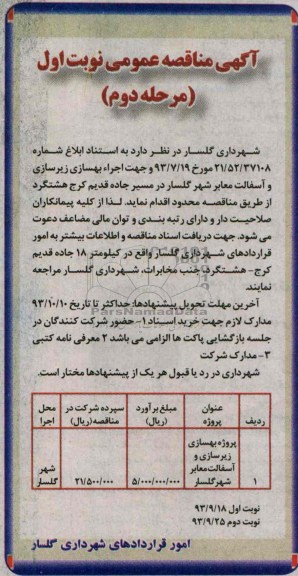 آگهی مناقصه عمومی نوبت اول
(مرحله دوم)
شهرداری گلسار در نظر دارد به استناد ابلاغ شماره
۲۱/۵۲/۳۷۱۰۸ مورخ ۹۳/۷/۱۹ و جهت اجراء بهسازی زیرسازی
و آسفالت معابر شهر گلسار در مسیر جاده قدیم کرج هشتگرد
از طریق مناقصه محدود اقدام نماید. لذا از کلیه پیمانکاران
صلاحیت دار و دارای رتبه بندی و توان مالی مضاعف دعوت
می شود. جهت دریافت اسناد مناقصه و اطلاعات بیشتر به امور
قراردادهای شهرداری گلسار واقع در کیلومتر ۱۸ جاده قدیم
کرج - هشتگرد جنب مخابرات، شهرداری گلسار مراجعه
نمایند.
آخرین مهلت تحویل پیشنهادها: حداکثر تا تاریخ ۹۳/۱۰/۱۰
ParsNamadData
مدارک لازم جهت خرید اسناد ۱- حضور شرکت کنندگان در
جلسه بازگشایی پاکت ها الزامی می باشد ۲ معرفی نامه کتبی
۳- مدارک شرکت
شهرداری در رد یا قبول هر یک از پیشنهادها مختار است.
ردیف عنوان پروژه مبلغ برآورد (ریال) سپرده شرکت در مناقصه (ریال) محل اجرا
۱ پروژه بهسازی زیرسازی و آسفالت معابر شهر گلسار ۵/۰۰۰/۰۰۰/۰۰۰ ۲۱/۵۰۰/۰۰۰ شهر گلسار
نوبت اول ۹۳/۹/۱۸
نوبت دوم ۹۳/۹/۲۵
امور قراردادهای شهرداری گلسار